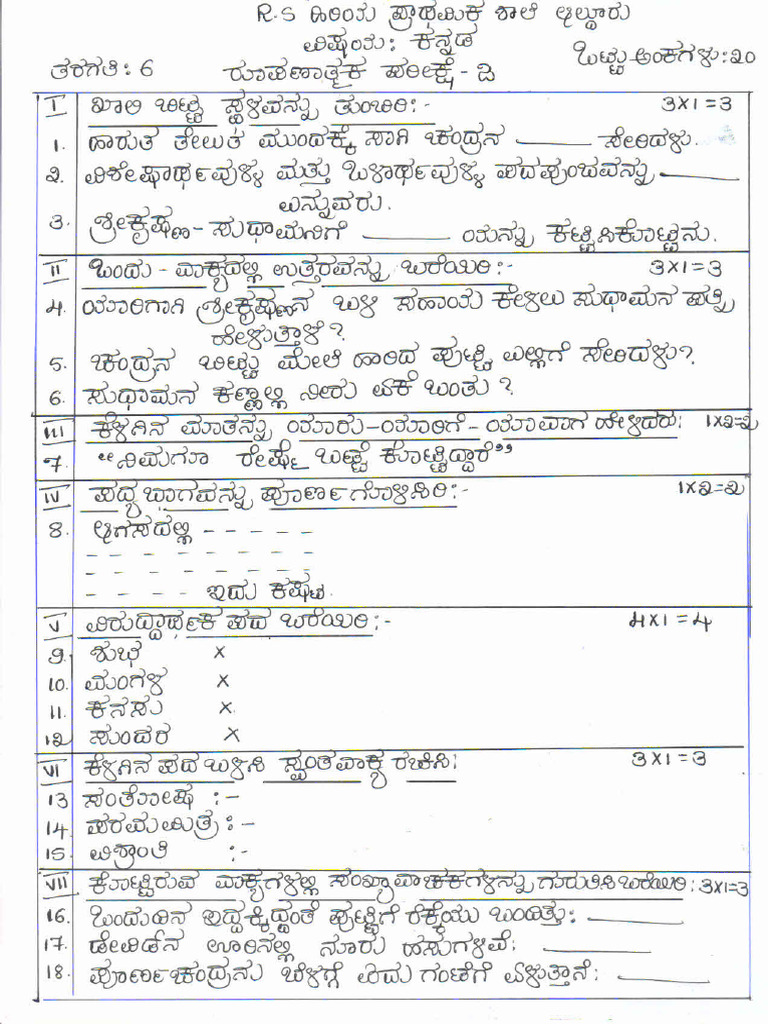 R.S ಹಿರಿಯ ಪ್ರಾಥಮಿಕ ಶಾಲೆ ಆಲ್ದೂರು
ವಿಷಯ: ಕನ್ನಡ
ತರಗತಿ: 6 ರೂಪಣಾತ್ಮಕ ಪರೀಕ್ಷೆ - ೨ ಒಟ್ಟು ಅಂಕಗಳು: ೩೦
I ಖಾಲಿ ಬಿಟ್ಟ ಸ್ಥಳವನ್ನು ತುಂಬಿರಿ:- 3x1=3
1. ಹಾರುತ ತೇಲುತ ಮುಂದಕ್ಕೆ ಸಾಗಿ ಚಂದ್ರನ ______ ಸೇರಿದಳು.
೨. ವಿಶೇಷಾರ್ಥವುಳ್ಳ ಮತ್ತು ಒಳಾರ್ಥವುಳ್ಳ ಪದಪುಂಜವನ್ನು ______
ಎನ್ನುವರು.
3. ಶ್ರೀಕೃಷ್ಣ - ಸುಧಾಮನಿಗೆ ______ ಯನ್ನು ಕಟ್ಟಿಸಿಕೊಟ್ಟನು.
II ಒಂದು - ವಾಕ್ಯದಲ್ಲಿ ಉತ್ತರವನ್ನು ಬರೆಯಿರಿ:- 3x1=3
4. ಯಾರಿಗಾಗಿ ಶ್ರೀಕೃಷ್ಣನ ಬಳಿ ಸಹಾಯ ಕೇಳಲು ಸುಧಾಮನ ಪತ್ನಿ
ಹೇಳುತ್ತಾಳೆ?
5. ಚಂದ್ರನ ಬಿಟ್ಟು ಮೇಲೆ ಹಾರಿದ ಪುಟ್ಟಿ ಎಲ್ಲಿಗೆ ಸೇರಿದಳು?
6. ಸುಧಾಮನ ಕಣ್ಣಲ್ಲಿ ನೀರು ಏಕೆ ಬಂತು?
III ಕೆಳಗಿನ ಮಾತನ್ನು ಯಾರು-ಯಾರಿಗೆ-ಯಾವಾಗ ಹೇಳಿದರು: 1x೨=೨
7. "ನಿಮಗೂ ರೇಷ್ಮೆ ಬಟ್ಟೆ ಕೊಟ್ಟಿದ್ದಾರೆ"
IV ಪದ್ಯಭಾಗವನ್ನು ಪೂರ್ಣಗೊಳಿಸಿರಿ:- 1x೨=೨
8. ಆಗಸದಲ್ಲಿ - - - - -
- - - - - - - -
- - - - - - - -
- - - - - ಇದು ಕಷ್ಟ.
V ವಿರುದ್ಧಾರ್ಥಕ ಪದ ಬರೆಯಿರಿ:- 4x1=4
9. ಶುಭ x
10. ಮಂಗಳ x
11. ಕನಸು x
1೨ ಸುಂದರ x
VI ಕೆಳಗಿನ ಪದ ಬಳಸಿ ಸ್ವಂತವಾಕ್ಯ ರಚಿಸಿ: 3x1=3
13 ಸಂತೋಷ :-
14 ಪರಮಮಿತ್ರ :-
15. ವಿಶ್ರಾಂತಿ :-
VII ಕೊಟ್ಟಿರುವ ವಾಕ್ಯಗಳಲ್ಲಿ ಸಂಖ್ಯಾವಾಚಕಗಳನ್ನು ಗುರುತಿಸಿ ಬರೆಯಿರಿ: 3x1=3
16. ಒಂದುದಿನ ಇದ್ದಕ್ಕಿದ್ದಂತೆ ಪುಟ್ಟಿಗೆ ರೆಕ್ಕೆಯು ಬಂದಿತ್ತು: ______
17. ಡೇವಿಡ್‌ನ ಊರಿನಲ್ಲಿ ನೂರು ಹಸುಗಳಿವೆ: ______
18. ಪೂರ್ಣಚಂದ್ರನು ಬೆಳಗ್ಗೆ ಐದು ಗಂಟೆಗೆ ಏಳುತ್ತಾನೆ: ______